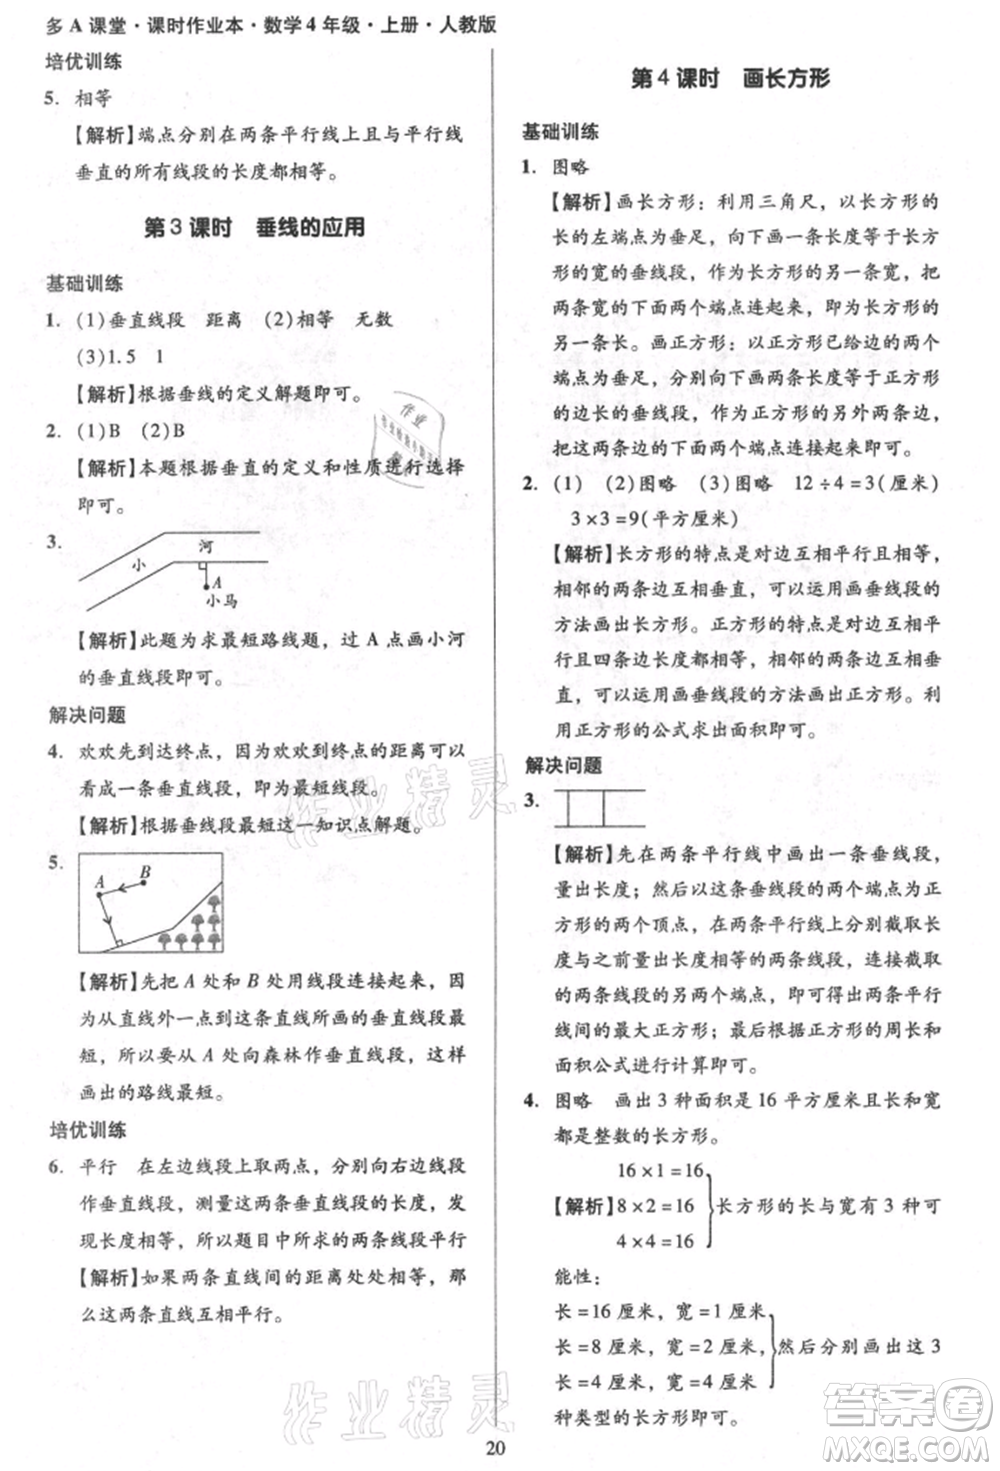 多 A 课堂·课时作业本·数学 4 年级·上册·人教版
培优训练
5. 相等
【解析】端点分别在两条平行线上且与平行线
垂直的所有线段的长度都相等。
第 3 课时 垂线的应用
基础训练
1. (1)垂直线段 距离 (2)相等 无数
(3)1.5 1
【解析】根据垂线的定义解题即可。
2. (1)B (2)B
【解析】本题根据垂直的定义和性质进行选择
即可。
3.
小 河
A
小马
【解析】此题为求最短路线题，过 A 点画小河
的垂直线段即可。
解决问题
4. 欢欢先到达终点，因为欢欢到终点的距离可以
看成一条垂直线段，垂直线段最短。
【解析】根据垂线段最短这一知识点解题。
5.
A B
【解析】先把 A 处和 B 处用线段连接起来，因
为从直线外一点到这条直线所画的垂直线段最
短，所以要从 A 处向森林作垂直线段，这样
画出的路线最短。
培优训练
6. 平行 在左边线段上取两点，分别向右边线段
作垂直线段，测量这两条垂直线段的长度，发
现长度相等，所以题目中所求的两条线段平行
【解析】如果两条直线间的距离处处相等，那
么这两条直线互相平行。
第 4 课时 画长方形
基础训练
1. 图略
【解析】画长方形：利用三角尺，以长方形的
长的左端点为垂足，向下画一条长度等于长方
形的宽的垂线段，再画长方形的另一条宽，把
两条宽的下面两个端点连起来，即画出长方形的
另一条长。画正方形：以正方形已给边的两个
端点为垂足，分别向下画两条长度等于正方形
的边长的垂线段，作为正方形的另外两条边，
再把这两条边的下面两个端点连起来即可。
2. (1) (2)图略 (3)图略 12÷4=3(厘米)
3×3=9(平方厘米)
【解析】长方形的特点是对边互相平行且相等，
相邻的两条边互相垂直，可以运用画垂线段的
方法画出长方形。正方形的特点是对边互相平
行且四条边长度都相等，相邻的两条边互相垂
直，可以运用画垂线段的方法画出正方形。利
用正方形的公式求出面积即可。
解决问题
3.
【解析】先在两条平行线中画出一条垂线段，
量出长度；然后以这条垂线段的两个端点为正
方形的两个顶点，在两条平行线上分别截取长
度与之前量出长度相等的两条线段，连接截取
的两条线段的另两个端点，即可得到两条平行
线间的最大正方形；最后根据正方形的周长和
面积公式进行计算即可。
4. 图略 画出 3 种面积是 16 平方厘米且长和宽
都是整数的长方形。
16×1=16
【解析】8×2=16 长方形的长与宽有 3 种可
4×4=16
能性：
长=16 厘米，宽=1 厘米
长=8 厘米，宽=2 厘米 然后分别画出这 3
长=4 厘米，宽=4 厘米
种类型的长方形即可。
20
作业精灵
作业精灵
作业
答案圈
MXQE.COM